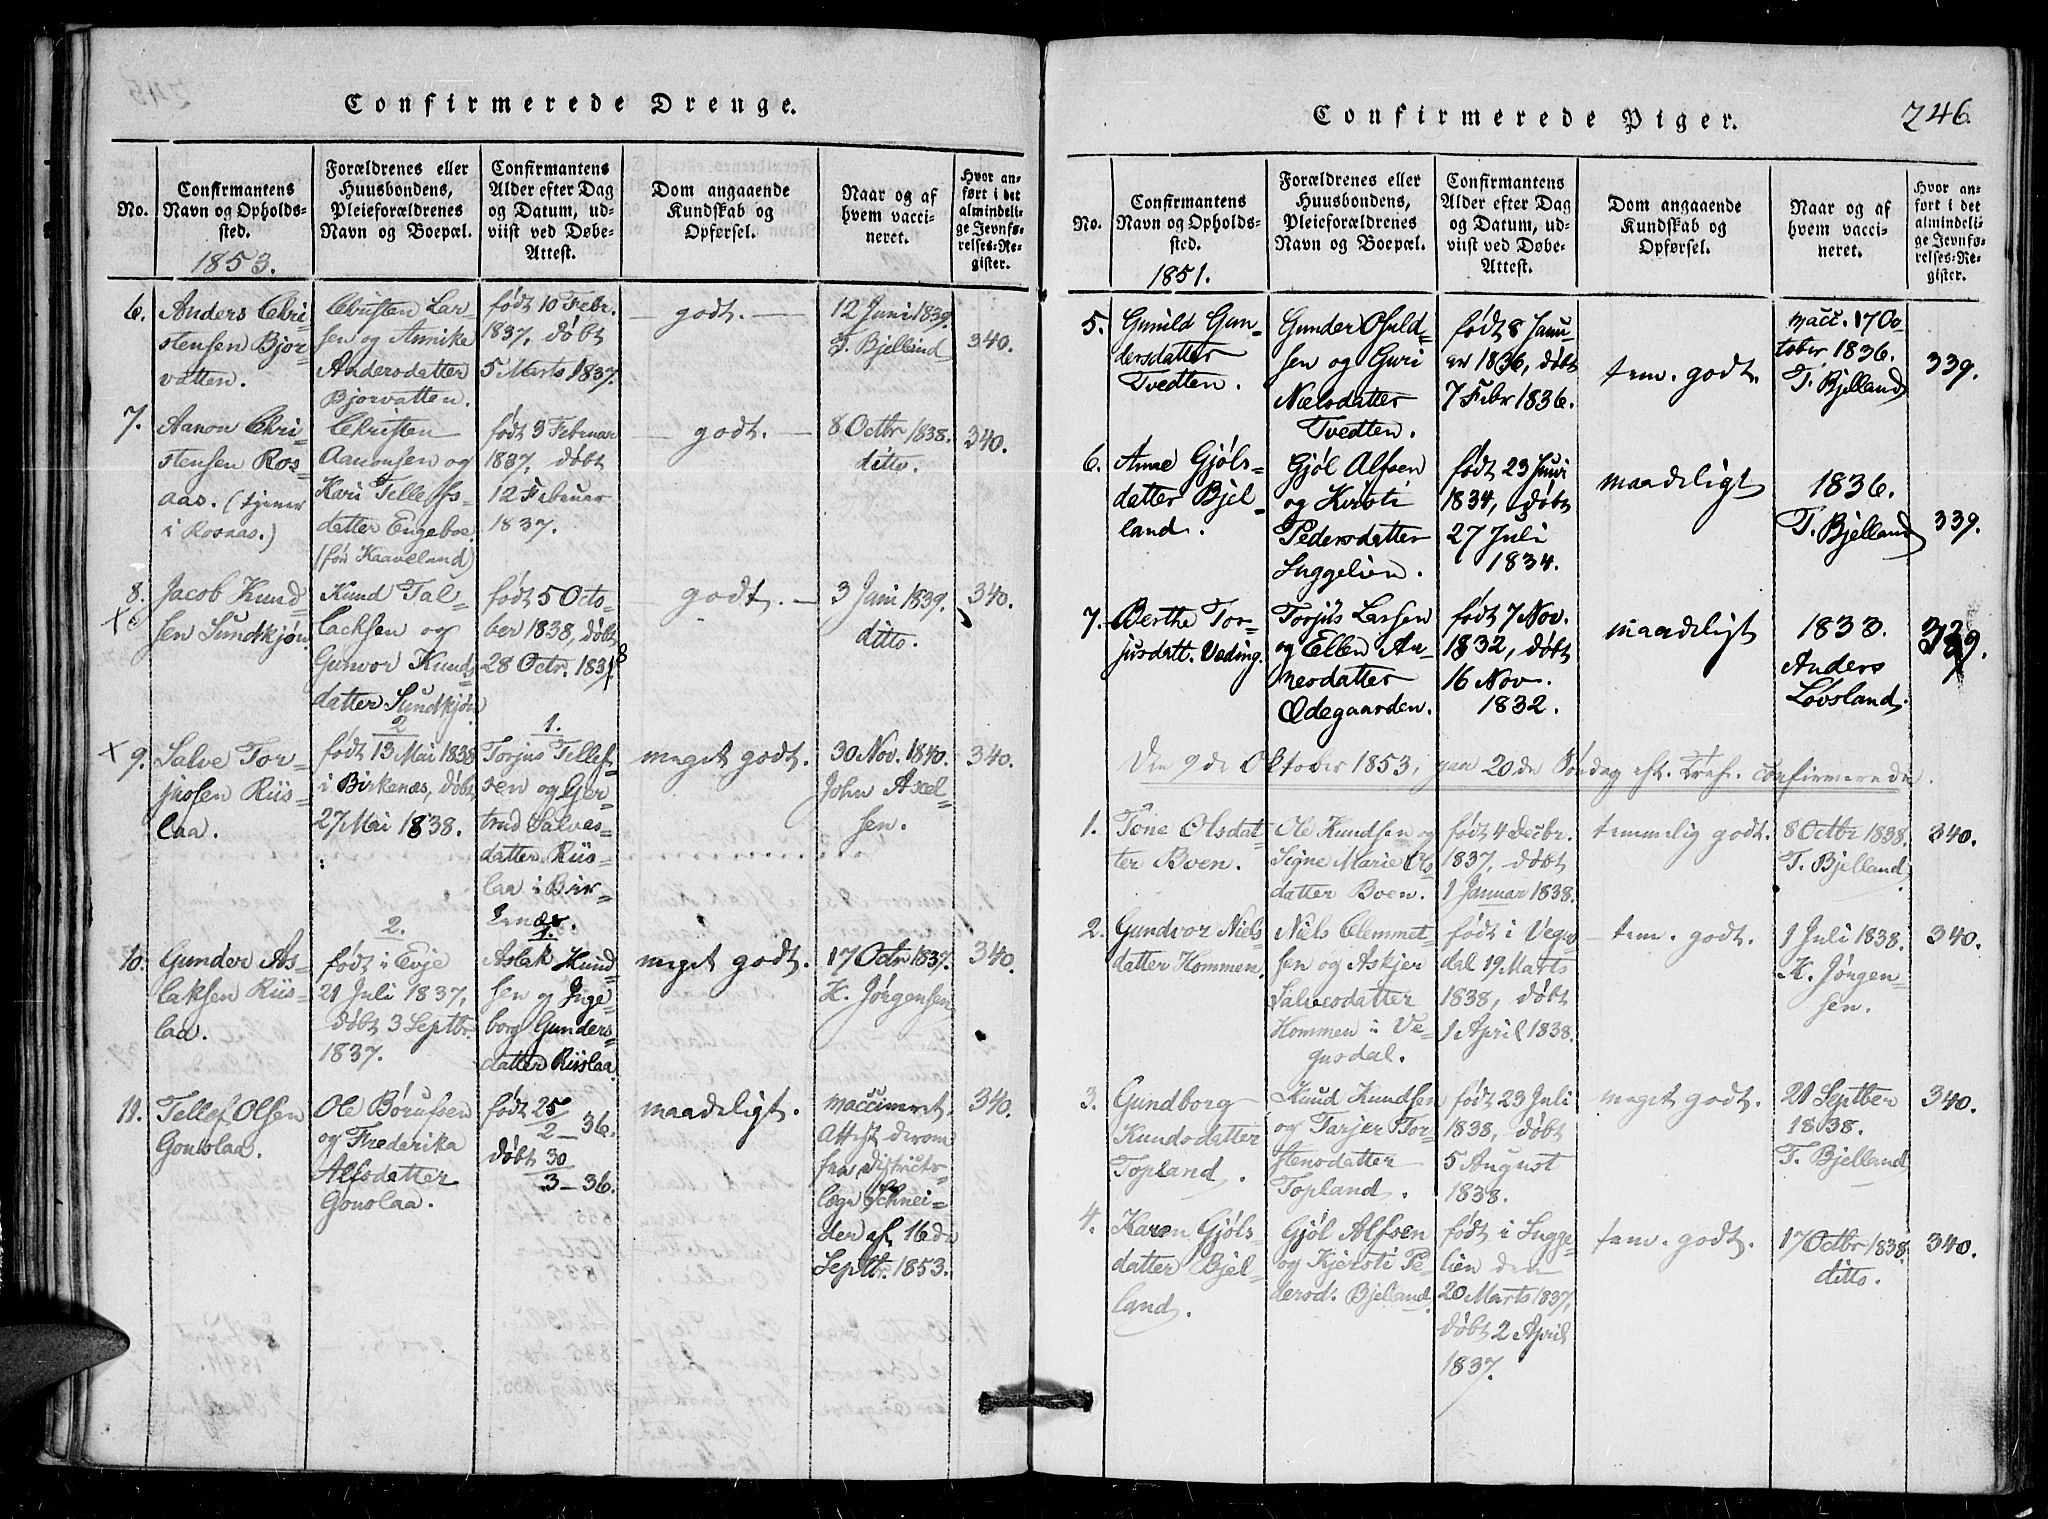 Confirmerede Drenge.
No.
Confirmantens
Navn og Opholds-
sted.
1853.
Forældrenes eller
Huusbondens,
Pleieforældrenes
Navn og Boepæl.
Confirmantens
Alder efter Dag
og Datum, ud-
viist ved Døbe-
Attest.
Dom angaaende
Kundskab og
Opførsel.
Naar og af
hvem vacci-
neret.
Hvor an-
ført i det
almindeli-
ge Jevnfø-
relses-Re-
gister.
6.
Anders Chri-
stensen Bjor-
vatten.
Christen Lar-
sen og Annike
Andersdatter
Bjorvatten.
født 10 Febr.
1837, døbt
5 Marts 1837.
— godt. —
12 Juni 1839.
T. Bjelland
340.
7.
Aanon Chri-
stensen Ros-
aas. (tjener
i Rosaas.)
Christen
Aanonsen og
Kari Tellefs-
datter Engeboe
(før Kaaveland)
født 3 Februar
1837, døbt
12 Februar
1837.
— godt. —
8 Octbr 1838.
ditto.
340.
8.
Jacob Knud-
sen Sundkjøn
Knud Tal-
lacksen og
Gunvor Knuds-
datter Sundkjøn
født 5 Octo-
ber 1838, døbt
28 Octr. 1838
— godt. —
3 Juni 1839.
ditto.
340.
x 9.
Salve Tor-
jusen Riis-
laa.
2
født 13 Mai 1838
i Birkenæs, døbt
27 Mai 1838.
1.
Torjus Tellef-
sen og Ger-
trud Salves-
datter Riis-
laa i Bir-
kenæs.
meget godt.
30 Nov. 1840.
John Axel-
sen.
340.
10.
Gunder As-
laksen Riis-
laa.
2.
født i Evje
21 Juli 1837,
døbt 3 Septbr.
1837.
1.
Aslak Knud-
sen og Inge-
borg Gunders-
datter Riislaa.
meget godt.
17 Octr 1837.
K. Jørgensen
340.
11.
Tellef Olsen
Gouslaa.
Ole Børufsen
og Frederika
Alfsdatter
Gouslaa.
født 25/2 — 36.
døbt 30/3 — 36.
maadeligt.
vaccineret,
Attest derom
fra Districts-
læge Schnei-
der af 16de
Septb. 1853.
340.
Confirmerede Piger.
246.
No.
Confirmantens
Navn og Opholds-
sted.
1851.
Forældrenes eller
Huusbondens,
Pleieforældrenes
Navn og Boepæl.
Confirmantens
Alder efter Dag
og Datum, ud-
viist ved Døbe-
Attest.
Dom angaaende
Kundskab og
Opførsel.
Naar og af
hvem vacci-
neret.
Hvor an-
ført i det
almindeli-
ge Jevnfø-
relses-Re-
gister.
5.
Gunild Gun-
dersdatter
Tvedten.
Gunder Osuld-
sen og Guri
Nielsdatter
Tvedten.
født 8 Janu-
ar 1836, døbt
7 Febr 1836.
tem. godt.
vacc. 17 Oc-
tober 1836.
T. Bjelland
339.
6.
Anne Gjøls-
datter Bjel-
land.
Gjøl Alfsen
og Kirsti
Pedersdatter
Suggelien.
født 23 Juni
1834, døbt
27 Juli
1834.
maadeligt
1836.
T. Bjelland
339.
7.
Berthe Tor-
jusdatt. Væding.
Torjus Larsen
og Ellen An-
nesdatter
Ødegaarden.
født 7 Nov.
1832, døbt
16 Nov.
1832.
maadeligt
1833.
Anders
Løvsland.
339.
Den 9de Oktober 1853, paa 20de Søndag eft. Tref. confirmerede.
1.
Tone Olsdat-
ter Boen.
Ole Knudsen og
Signe Marie Ols-
datter Boen.
født 4 Decbr.
1837, døbt
1 Januar 1838.
temmelig godt.
8 Octbr 1838.
T. Bjelland
340.
2.
Gundvor Niels-
datter Hommen.
Niels Clemmet-
sen og Askjer
Salvesdatter
Hommen i Ve-
gusdal.
født i Vegus-
dal 19 Marts
1838, døbt
1 April 1838.
tem. godt.
1 Juli 1838.
K. Jørgen-
sen.
340.
3.
Gundborg
Knudsdatter
Topland.
Knud Knudsen
og Tarjer Tor-
stensdatter
Topland.
født 23 Juli
1838, døbt
5 August
1838.
meget godt.
21 Septber
1838.
T. Bjelland
340.
4.
Karen Gjøls-
datter Bjel-
land.
Gjøl Alfsen
og Kjersti Pe-
dersd: Bjelland.
født i Sugge-
lien den
20 Marts 1837,
døbt 2 April
1837.
tem. godt.
17 Octbr 1838.
ditto.
340.